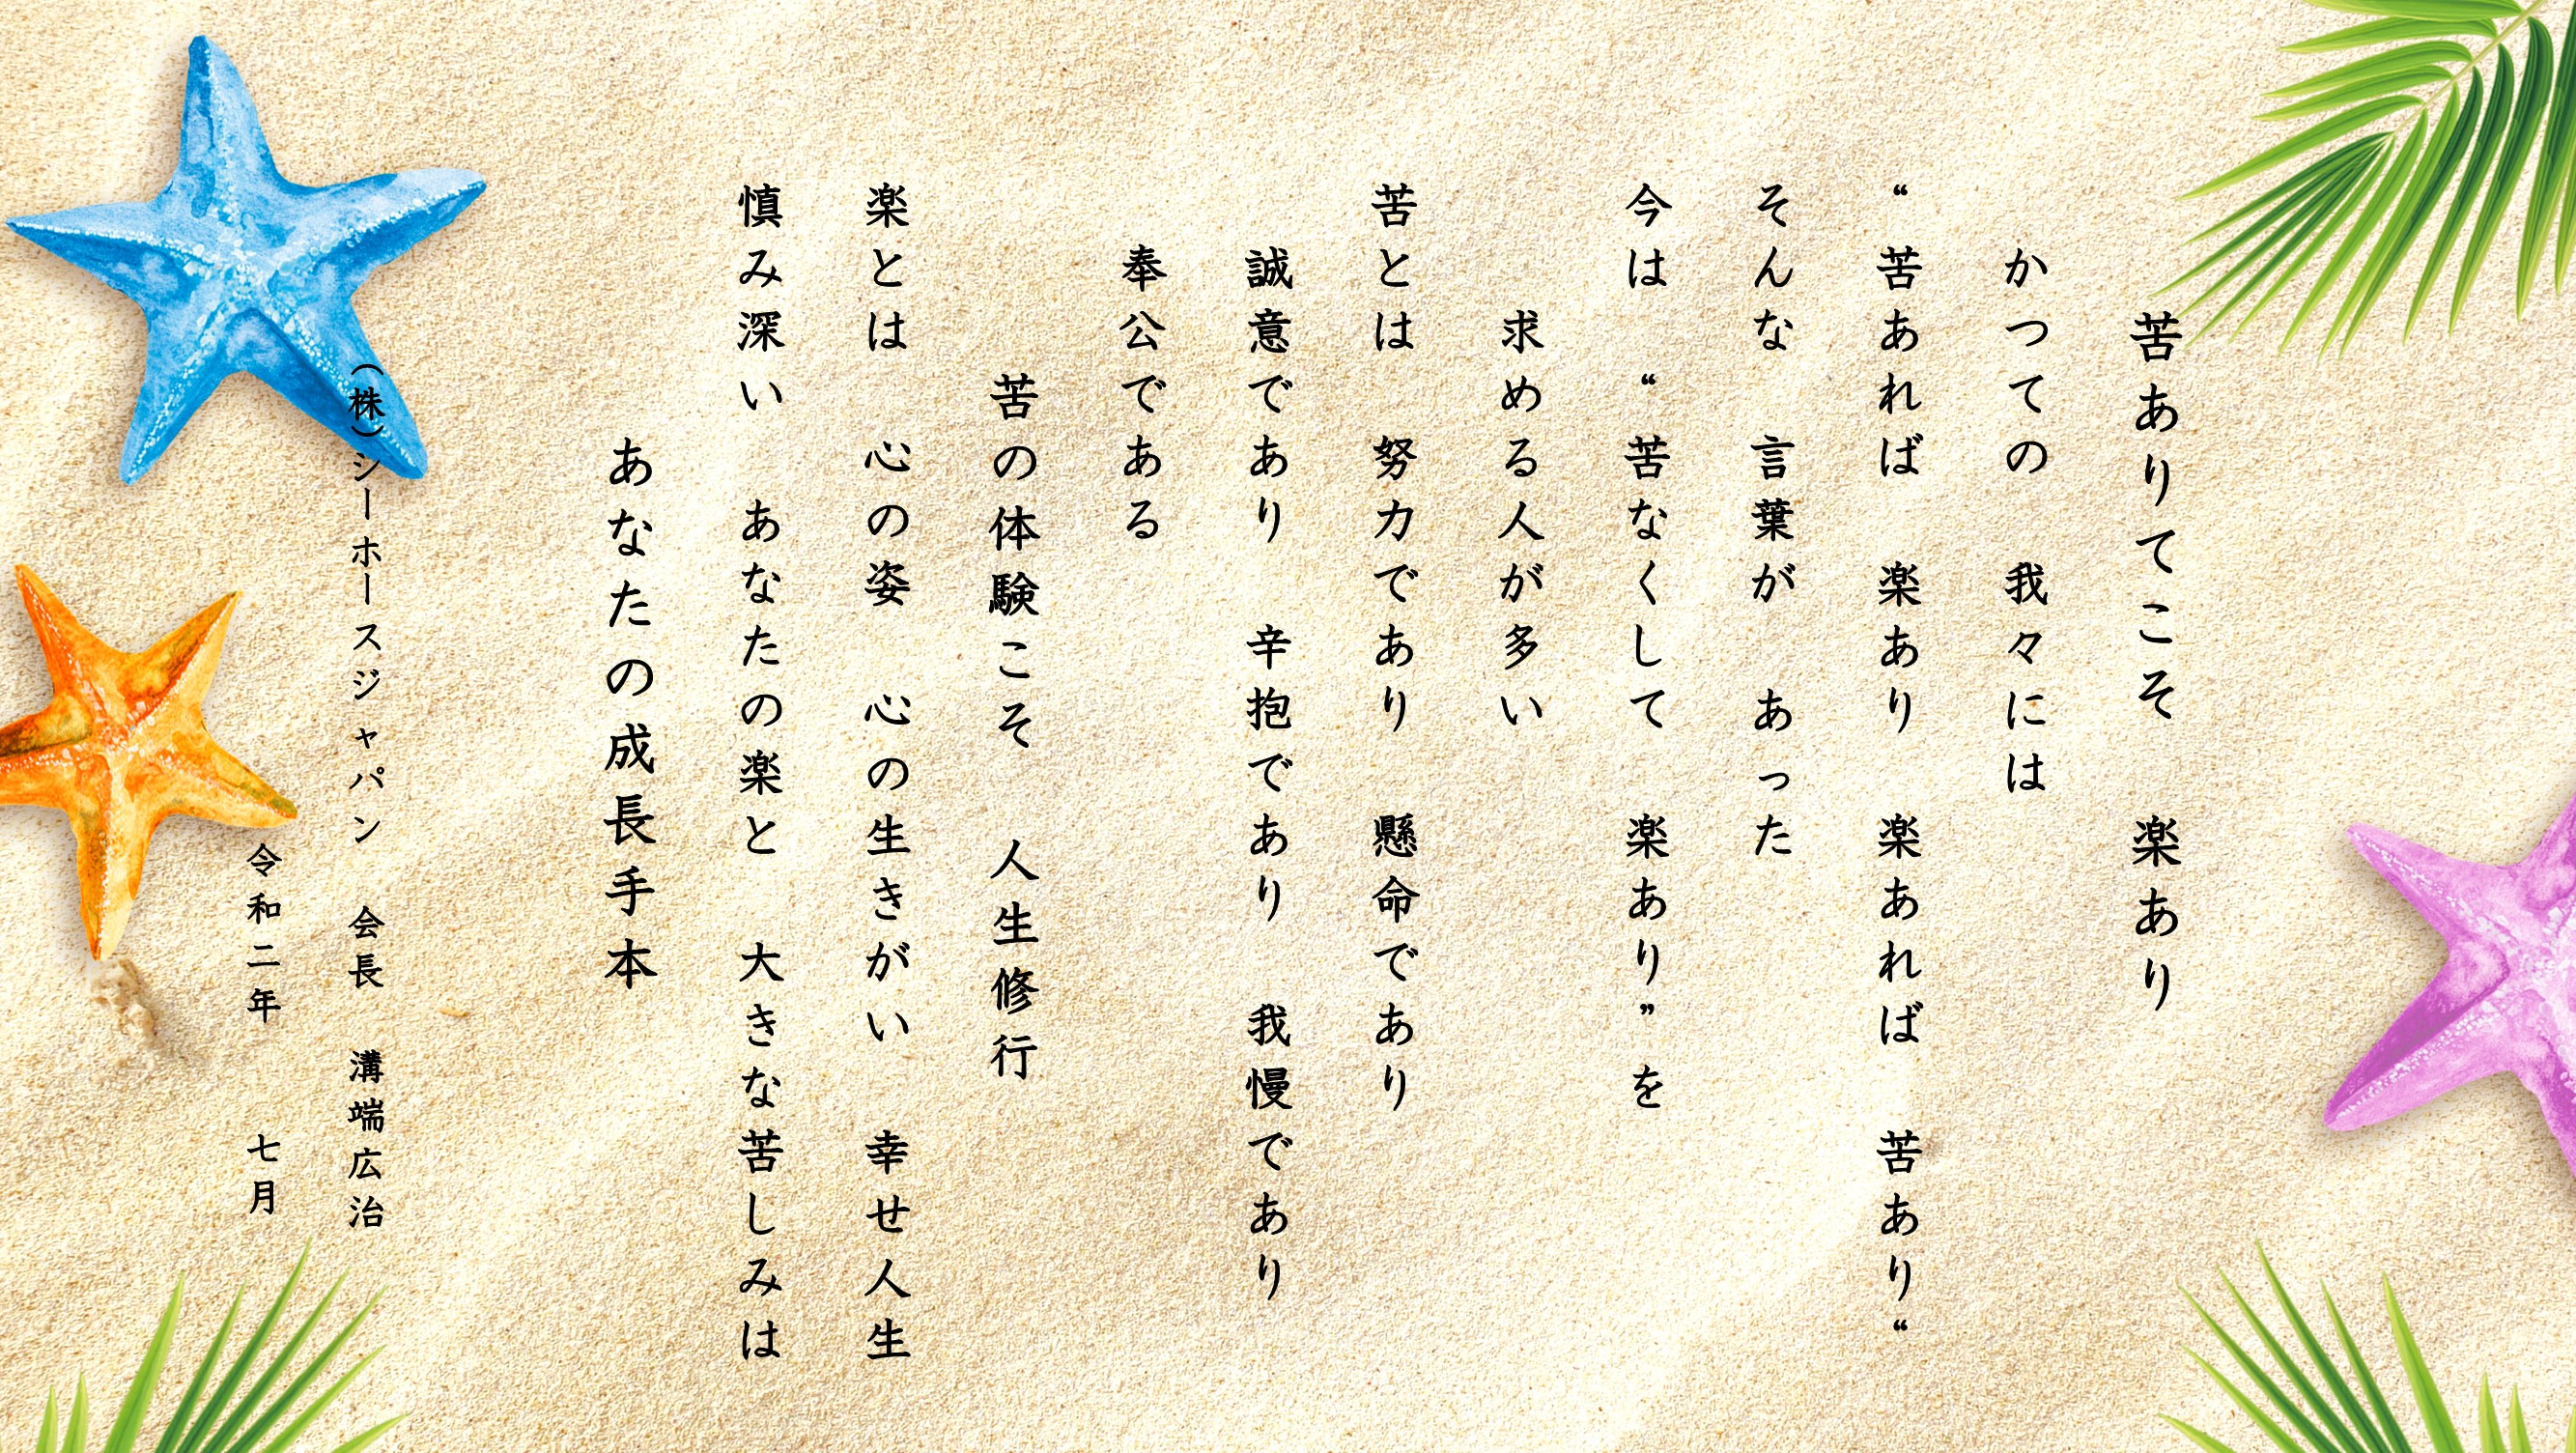 苦ありてこそ　楽あり
かつての　我々には
“苦あれば　楽あり　楽あれば　苦あり“
そんな　言葉が　あった
今は　“苦なくして　楽あり”を
求める人が多い
苦とは　努力であり　懸命であり
誠意であり　辛抱であり　我慢であり
奉公である
苦の体験こそ　人生修行
楽とは　心の姿　心の生きがい　幸せ人生
慎み深い　あなたの楽と　大きな苦しみは
あなたの成長手本
（株）シーホースジャパン　会長　溝端広治
令和二年　　七月